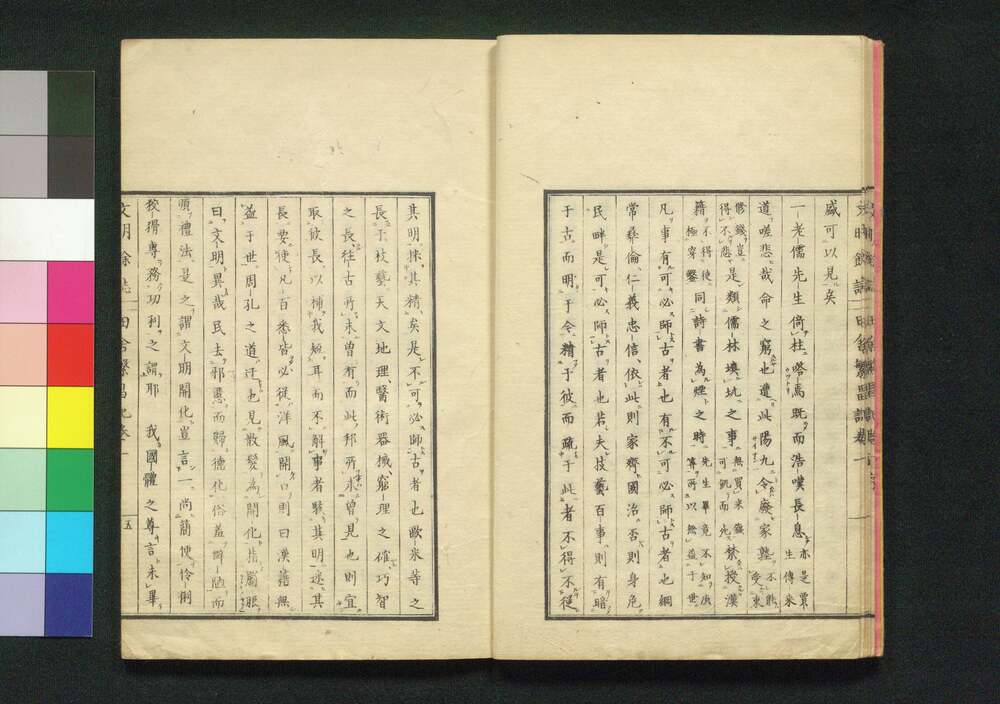 盛可以見矣
一老儒先生倚柱嗒焉既而浩嘆長息亦是賈生傳来
道嗟悲哉命之窮也遭此陽九令廢家塾不能受束
脩錢豈得不悲是類儒林墺坑之事無買米錢可飢而死禁授漢
籍不得使極穿鑿同詩書為煙之時先生畢竟不知庚籌所以無益于世
凡事有可必師古者也有不可必師古者也綱
常彝倫仁義忠信依此則家齊國治否則身危
民畔是可必師古者也若夫技藝百事則有暗
于古而明于今精于彼而疏于此者不得不従
其明採其精矣是不可必師古者也歐米等之
長于技藝天文地理醫術器械窮理之確巧智
之長往古所未曾有而此邦所未曾見也則宜
取彼長以補我短耳而不解事者驚其明迷其
長要使凡百悉皆必従洋風開口則曰漢籍無
益于世周孔之道迂也見散髪為開化
曰文明異哉民去邪慝而歸德化俗蓋陋而
順禮法是之謂文明開化豈言一尚簡便怜悧
狡猾專務功利之謂耶我國體之尊言未畢
文明餘誌 田舎繁昌記巻一 五